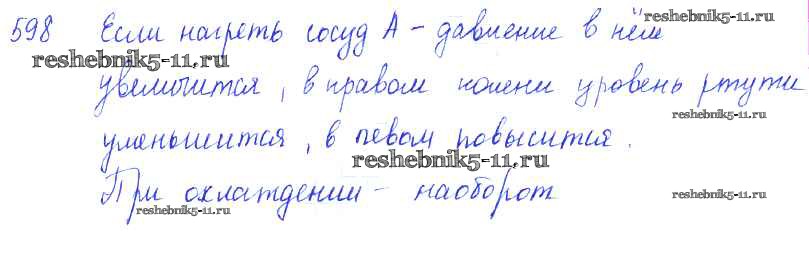 598 Если нагреть сосуд А – давление в нём
reshebnik5-11.ru
reshebnik5-11.ru
увеличится, в правом колени уровень ртути
reshebnik5-11.ru
уменьшится, в левом повысится.
reshebnik5-11.ru
При охлаждении – наоборот
reshebnik5-11.ru
reshebnik5-11.ru